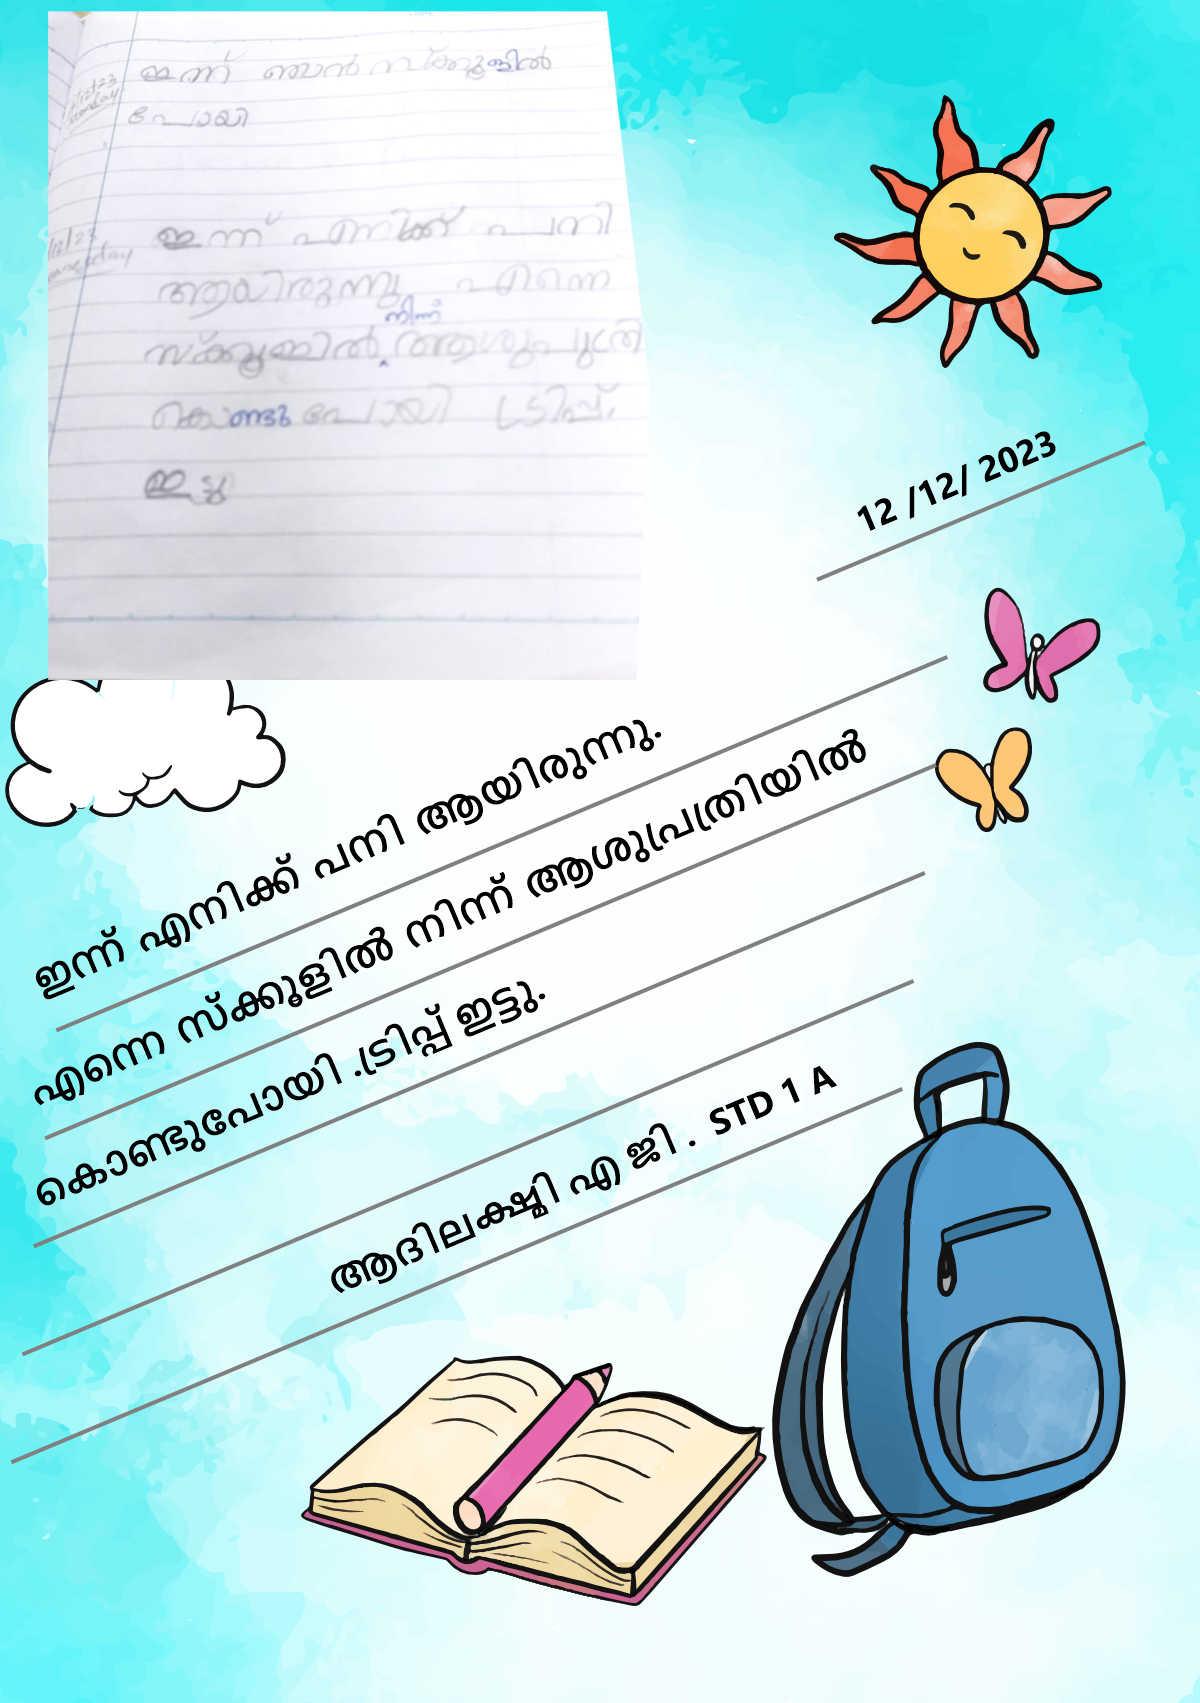 ഇന്ന് ഞാൻ സ്ക്കൂളിൽ
പോയി
ഇന്ന് എനിക്ക് പനി
ആയിരുന്നു എന്നെ
നിന്ന്
സ്ക്കൂളിൽ ആശുപത്രി
കൊണ്ടു പോയി ട്രിപ്പ്
ഇട്ടു
12 /12/ 2023
ഇന്ന് എനിക്ക് പനി ആയിരുന്നു.
എന്നെ സ്ക്കൂളിൽ നിന്ന് ആശുപ്രത്രിയിൽ
കൊണ്ടുപോയി .ട്രിപ്പ് ഇട്ടു.
ആദിലക്ഷ്മി എ ജി . STD 1 A